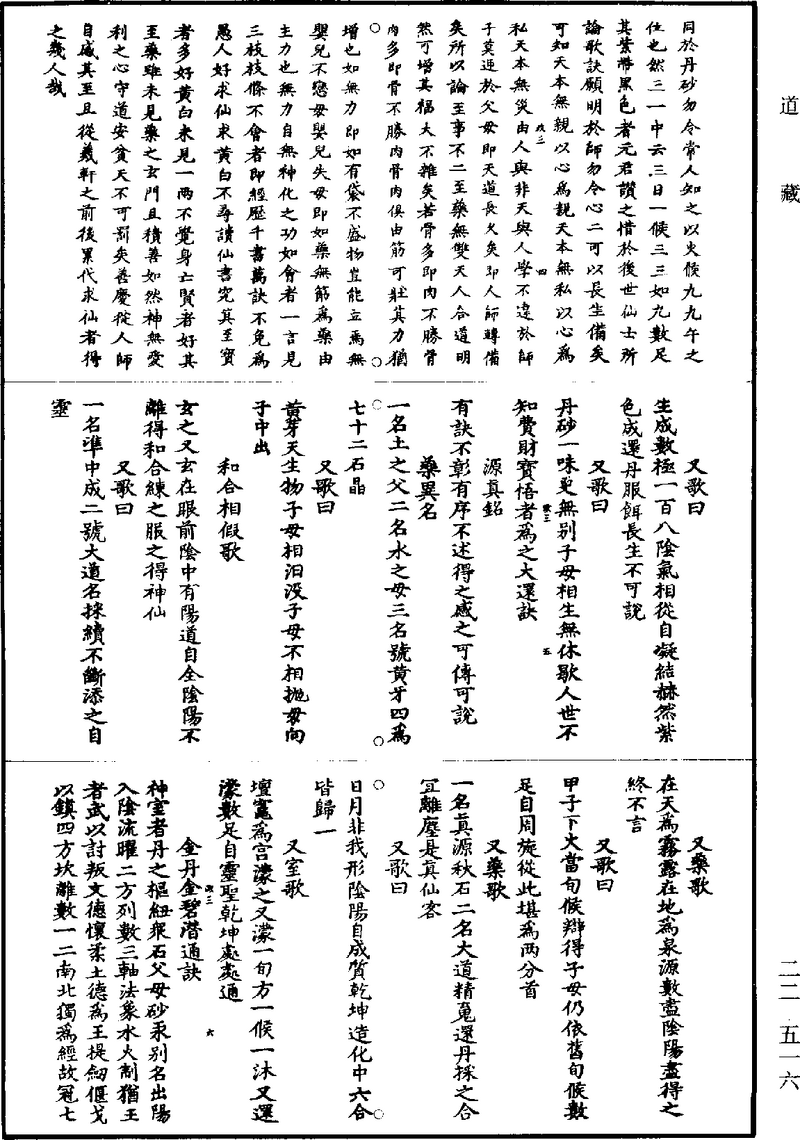 道藏
同於丹砂勿令常人知之以火候九九午之
位也然三一中云三日一候三三如九數足
其紫帶黑色者元君讚之惜於後世仙士所
論歌訣願明於師勿令心二可以長生備矣
可知天本無親以心爲親天本無私以心爲
私天本無災由人與非天與人學不違於師
子莫逆於父母即天道長久矣即人師轉備
矣所以論至事不二至藥無雙天人合道明
然可增其福大不雜矣若骨多即肉不勝骨
肉多即骨不勝肉骨肉俱由筋可壯其力猶
增也如無力即如有袋不盛物豈能立焉無
嬰兒不戀母嬰兒失母即如藥無筋爲藥由
主力也無力自無神化之功如會者一言見
三枝枝條不會者即經歷千書萬訣不免爲
愚人好求仙求黄白不尋讀仙書究其至寳
者多好黄白未見一兩不覺身亡賢者好其
至藥雖未見藥之玄門且積善如然神無愛
利之心守道安貧天不可罰矣善慶從人師
自感其至且從羲軒之前後累代求仙者得
之幾人哉
又歌曰
生成數極一百八陰氣相從自凝結赫然紫
色成還丹服餌長生不可說
又歌曰
丹砂一味更無别子母相生無休歇人世不
知費財寳悟者爲之大還訣
源真銘
有訣不彰有序不述得之感之可傳可說
藥異名
一名土之父二名水之母三名號黄牙四爲
七十二石晶
又歌曰
黄芽天生物子母相汨没子母不相抛母向
子中出
和合相假歌
玄之又玄在眼前陰中有陽道自全陰陽不
離得和合練之服之得神仙
又歌曰
一名準中成二號大道名採續不斷添之自
靈
又藥歌
在天爲霧露在地爲泉源數盡陰陽盡得之
終不言
又歌曰
甲子下火當旬候辯得子母仍依舊旬候數
足自周旋從此堪爲两分首
又藥歌
一名真源秋石二名大道精䰟還丹採之合
宜離塵是真仙客
又歌曰
日月非我形陰陽自成質乾坤造化中六合
皆歸一
又室歌
壇竈爲宫濛之又濛一旬方一候一沐又還
濛數足自靈聖乾坤處處通
金丹金碧潜通訣
神室者丹之樞紐衆石父母砂汞别名出陽
入陰流曜二方列數三軸法象水火制猶王
者武以討叛文德懷柔土德爲王提劒偃戈
以鎮四方坎離數一二南北獨爲經故冠七
二二 五一六